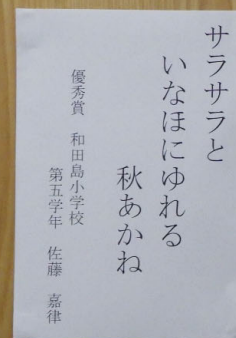 サラサラと
いなほにゆれる
秋あかね
優秀賞 和田島小学校
第五学年 佐藤 嘉律